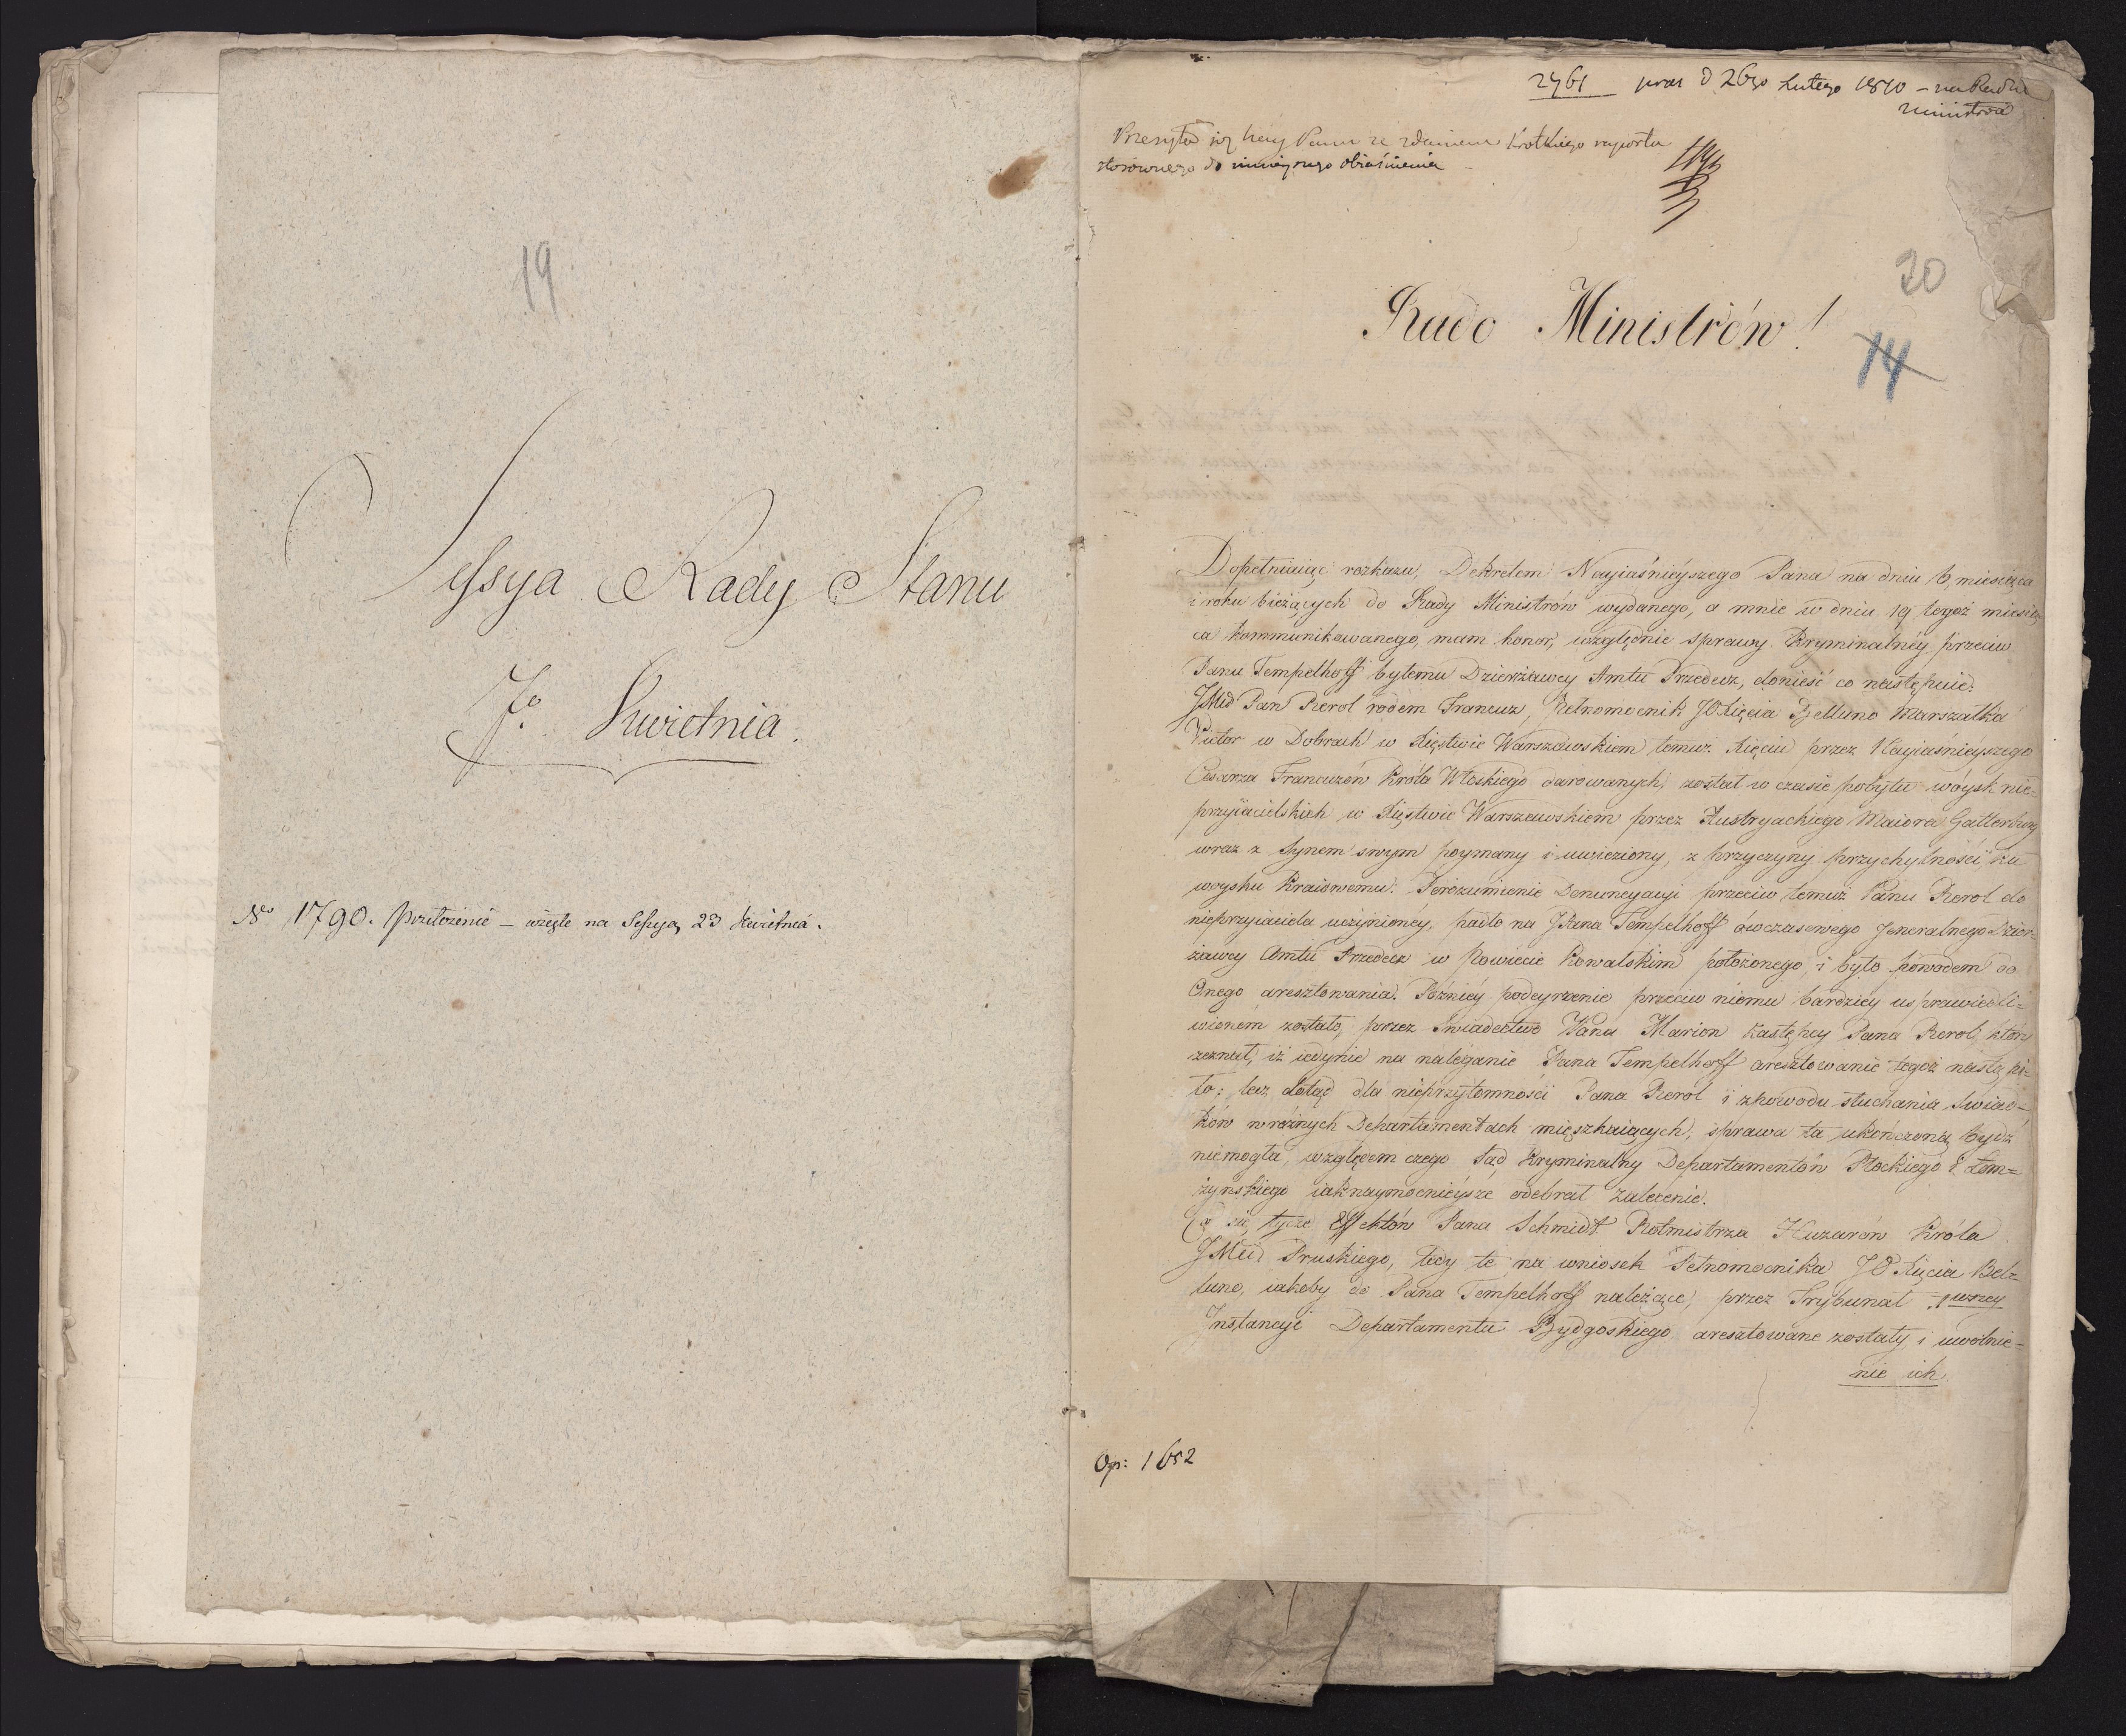 19
Sessya Rady Stanu
7º Kwietnia.
Nº 1790. Przełożenie – wzięte na Sessyą 23 Kwietnia.
2761 praes d 26go Lutego 1810 – na Radzie
Ministrów
Przesyła się Panu ze zdaniem krótkiego raportu
stosownego do ninieyszego obiaśnienia
20
Rado Ministrów!
14
Dopełniaiąc rozkazu, Dekretem Nayiaśnieyszego Pana na dniu 6 miesiąca
i roku bieżących do Rady Ministrów wydanego, a mnie w dniu 19 tegoż miesią
ca kommunikowanego, mam honor, względnie sprawy Kryminalnéy przeciw
Panu Tempelhoff byłemu Dzierżawcy Amtu Przedecz, donieść co następuie:
JMść Pan Rerol rodem Francuz, Pełnomocnik JO Xięcia Belluno Marszałka
Victor w Dobrach w Xięstwie Warszawskiem temuż Xięciu przez Nayiaśnieyszego
Cesarza Francuzów Króla Włoskiego darowanych, został w czasie pobytu wóysk nie=
przyiacielskich w Xięstwie Warszawskiem przez Austryackiego Maiora Gatterburg
wraz z Synem swym poymany i uwięziony, z przyczyny przychylności, ku
woysku Kraiowemu. Porozumienie Denuncyacyi przeciw temuż Panu Rerol do
nieprzyiaciela uczynionéy, padło na JPana Tempelhoff ówczasowego Jeneralnego Dzier=
żawcy Amtu Przedecz w Powiecie Kowalskim położonego, i było powodem do
Onego aresztowania. Poźniéy podeyrzenie przeciw niemu bardziéy usprawiedli=
wionem zostało, przez Świadectwo Pana Marion Zastępcy Pana Rerol, który
zeznał, iż iedynie na naleganie Pana Tempelhoff aresztowanie tegoż nastąpi=
ło: lecz dotąd dla nieprzytomności Pana Rerol i z powodu słuchania Świad=
ków w różnych Departamentach mieszkaiących, sprawa ta ukończoną bydź
niemogła, względem czego Sąd Kryminalny Departamentów Płockiego i Łom=
żyńskiego iaknaymocnieysze odebrał zalecenie.
Co się tycze Effektów Pana Schmidt Rotmistrza Huzarów Króla
JMci Pruskiego, tedy te na wniosek Pełnomocnika JO Xięcia Bel=
luno, iakoby do Pana Tempelhoff należące, przez Trybunał 1wszey
Instancyi Departamentu Bydgoskiego aresztowane zostały, i uwolnie=
nie ich
Op: 1652